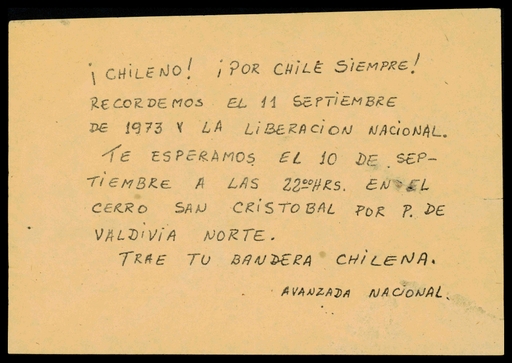 ¡CHILENO! ¡POR CHILE SIEMPRE!
RECORDEMOS EL 11 SEPTIEMBRE
DE 1973 Y LA LIBERACION NACIONAL.
TE ESPERAMOS EL 10 DE SEP-
TIEMBRE A LAS 22ºº HRS. EN EL
CERRO SAN CRISTOBAL POR P. DE
VALDIVIA NORTE.
TRAE TU BANDERA CHILENA.
AVANZADA NACIONAL.